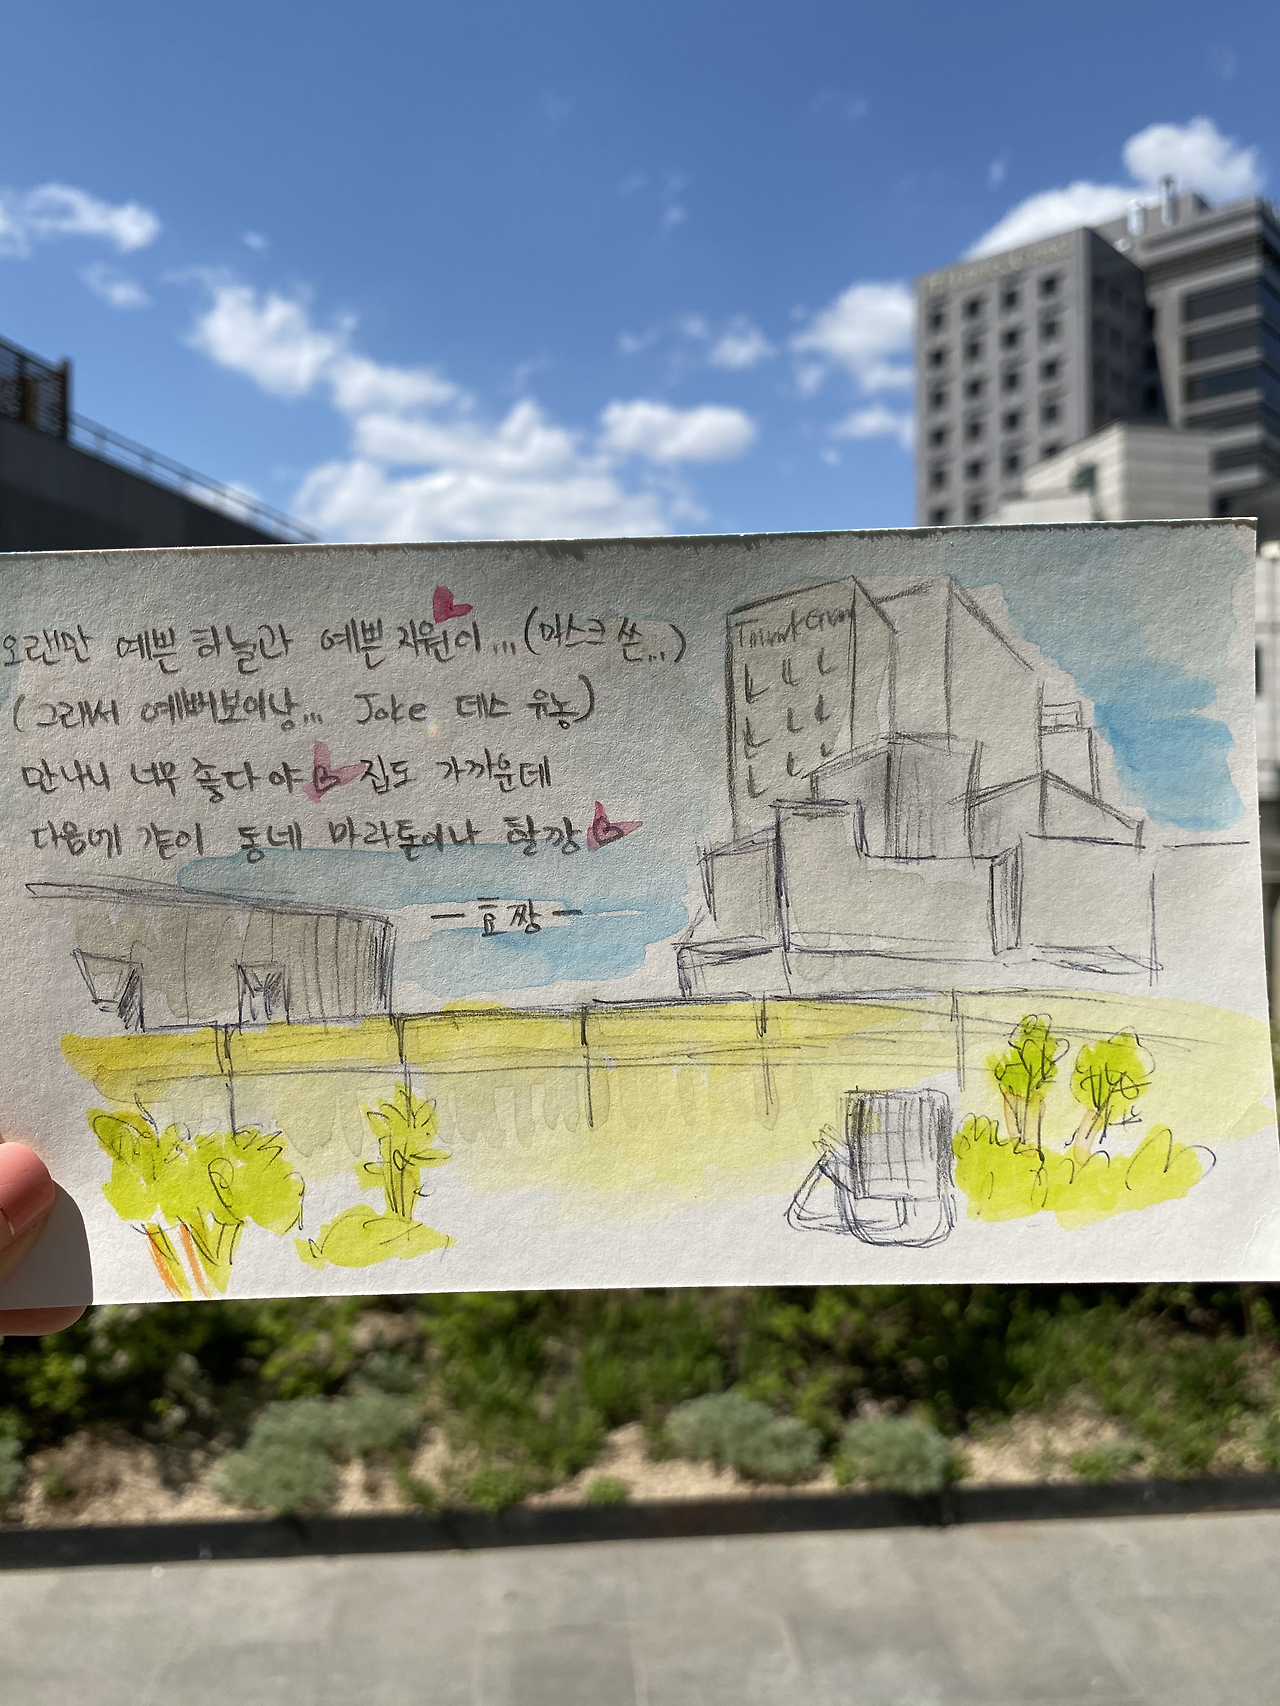 오랜만 예쁜 하늘과 예쁜 지원이...(마스크 쓴...)
(그래서 예뻐보이낭... Joke 데스 유놓)
만나니 너무 좋다야 집도 가까운데
다음에 같이 동네 마라톤이나 할깡
-효짱-